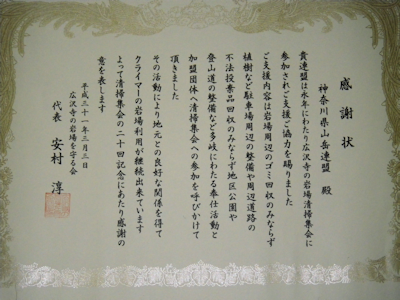 感謝状
神奈川県山岳連盟 殿
貴連盟は永年にわたり広沢寺の岩場清掃集会に
参加されご支援ご協力を賜りました
ご支援内容は岩場周辺のゴミ回収のみならず
植樹など駐車場周辺の整備や周辺道路の
不法投棄品回収のみならず地区公園や
登山道の整備など多岐にわたる奉仕活動と
加盟団体へ清掃集会への参加を呼びかけて
頂きました
その活動により地元との良好な関係を得て
クライマーの岩場利用が継続出来ています
よって清掃集会の二十回記念にあたり感謝の
意を表します
平成三十一年三月三日
広沢寺の岩場を守る会
代表 安村 淳